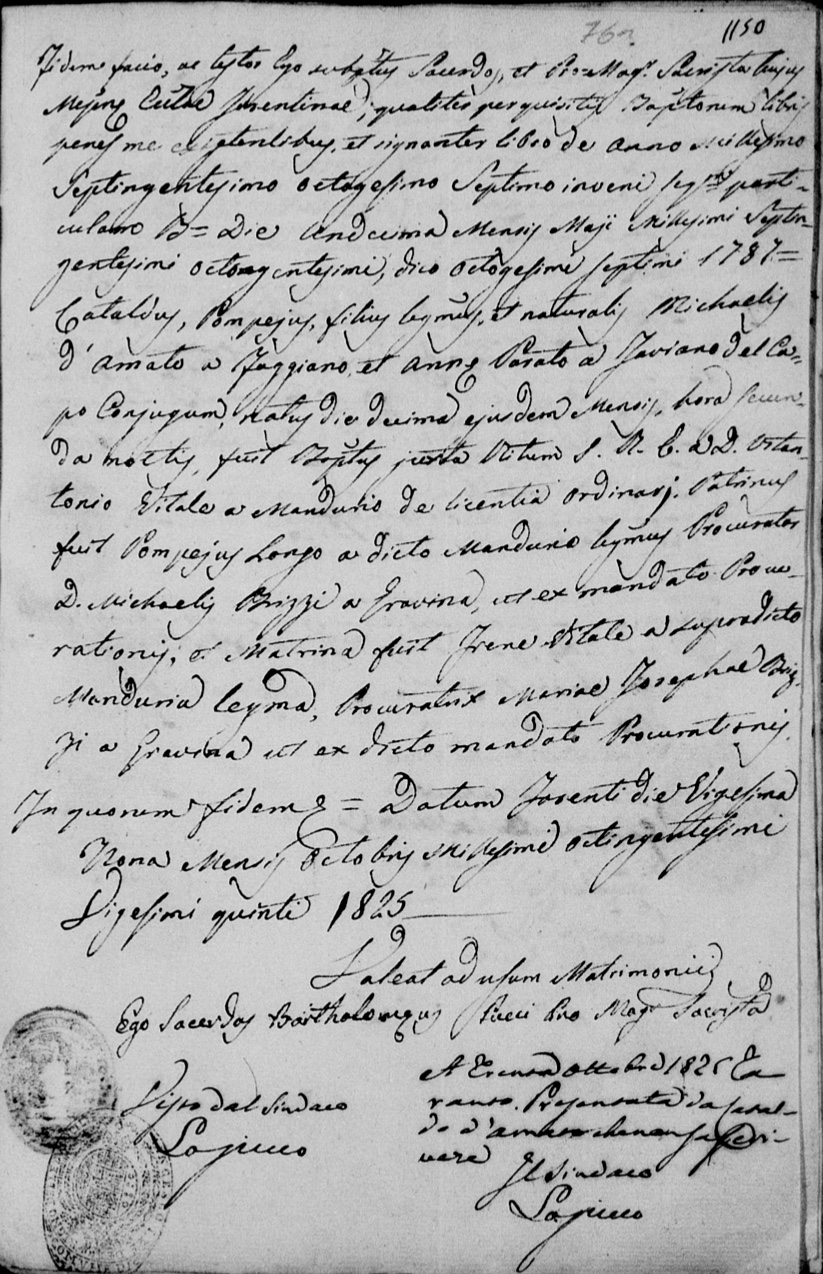 1150
76
Fidem facio, ac testor Ego subptus Sacerdos, et Pro=Magr Sacrista hujus
Ecclae Tarentinae; qualiter perquisitis Baptorum libris
penes me existentibus, et signanter libro de anno Millesimo
Septingentesimo octogesimo Septimo inveni parti-
culam V= Die Undecima Mensis Maji Millesimi Septin-
gentesimi octongentesimi, dico octogesimi septimi 1787=
Cataldus, Pompejus, filius legmus, et naturalis Michaelis
d'Amato a Faggiano, et Annę Parato a Taviano del Ca=
po Conjugum, natus die decima ejusdem Mensis, hora secun-
da noctis, fuit Baptus juxta Ritum S. R. E. a D. Oron-
tonio Vitale a Mandurio de licentia ordinarj. Patrinus
fuit Pompejus Longo a dicto Mandurio legmus Procurator
D. Michaelis Brizzi a Gravina, ut ex mandato Procu-
rationis; et Matrina fuit Irene Vitale a supradicto
Manduria legma, Procuratrix Mariae Josephae Briz-
zi a Gravina ut ex dicto mandato Procurationis.
In quorum fidem = Datum Tarenti die Vigesima
Nona Mensis Octobris Millesimi octingentesimi
Vigesimi quinti 1825
Valeat ad usum Matrimonii
Ego Sacerdos Bartholomęus Pucci Pro Magr Sacrista
Visto dal Sindaco
Lojucco
A Trenta Ottobre 1825 Ta
ranto. Presentata da Catal-
do d'Amato che non sa scri-
vere
Il Sindaco
Lojucco